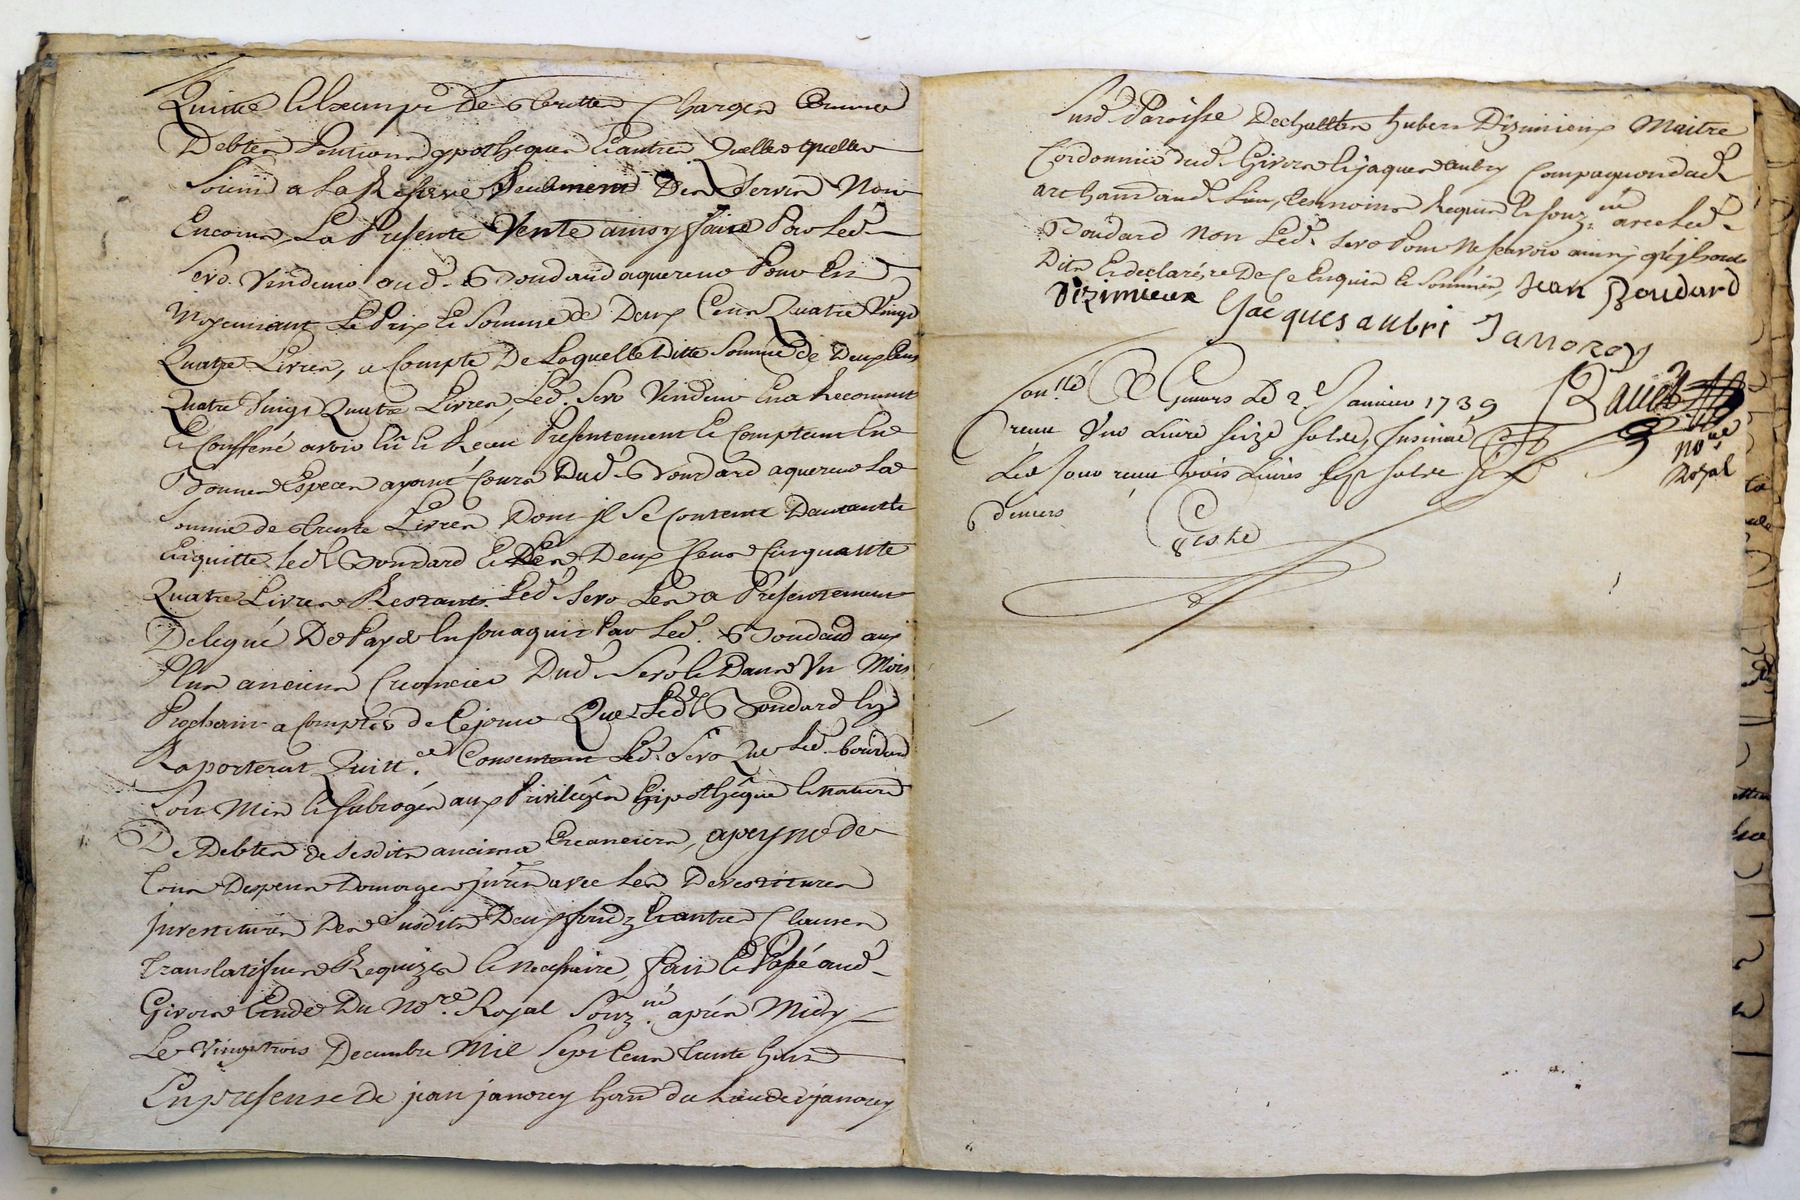 Quitte & Exempt De Toutte Charges Comme
Debtes Pentions ypothèques & autres Quelles quelles
Soiend a La Reserve Seulement Des Servis Non
Encorus, La Presente Vente ainsy faitte Par Led.
Sero Vendeur aud. Boudard aquereur Pour Et
Moyennant Le Prix & Somme de Deux Cens Quatre Vingt
Quatre Livres, a Compte De Laquelle Ditte Somme de Deux Cens
Quatre Vingt Quatre Livres, Led. Sero Vendeur En a Reconnut
& Confessé avoir Eü & Receu Presentement & Comptant En
Bonnes Especes ayant Cours Dud. Boudard aquereur La
Somme de Trente Livres Dont jl Se Contente Dautantt
Enquitte led. Boudard & Les Deux Cens Cinquante
Quatre Livres Restant Led. Sero Les a Presentement
Delegué De Payer En son aquit Par Led. Boudard aux
Plus anciens Creanciers Dud. Sero & Dans Un Mois
Prochain a Compter de Cejour Que Led. Boudard Luy
Raporterat Quitt.ce Consentant Led. Sero Que Led. boudard
Soit Mis & subrogés aux Privilèges Hipothêque & nature
De Debtes de Sesdits anciens Creanciers, apeyne de
Tous Despens Domages jnrés avec Les Devestitures
jnvestitures Des Susdits Deux fondz & autres Clauses
Translatifves Requizes & necessaire, fait & Passé aud.
Givors Etude Du No.re Royal Souz.né après Midy
Le Vingttrois Decembre Mil Sept Cens trente huit
En presense De jean janorey hant du Lieu de janorey
Susd. Paroisse Dechallten hubert Dizimieux Maitre
Cordonnier dud. Givors & jaques aubry Compagnon dud.
art hant aud. Lieu, Temoins Requis & souz.né avec Led.
Boudard Non Led. Sero Pour Ne Scavoir ainsy qu'jl nous
Dit & declaré, de Ce Enquis & Sommés, Jean Boudard
Dizimieux Jacques aubri Janorey
Con.llé A Givors Le 2.e Janvier 1739
receu Une Livre Seize Sols, Insinué
Led. Jour receu trois Livres Sept Sols Six
deniers
No.re
Royal